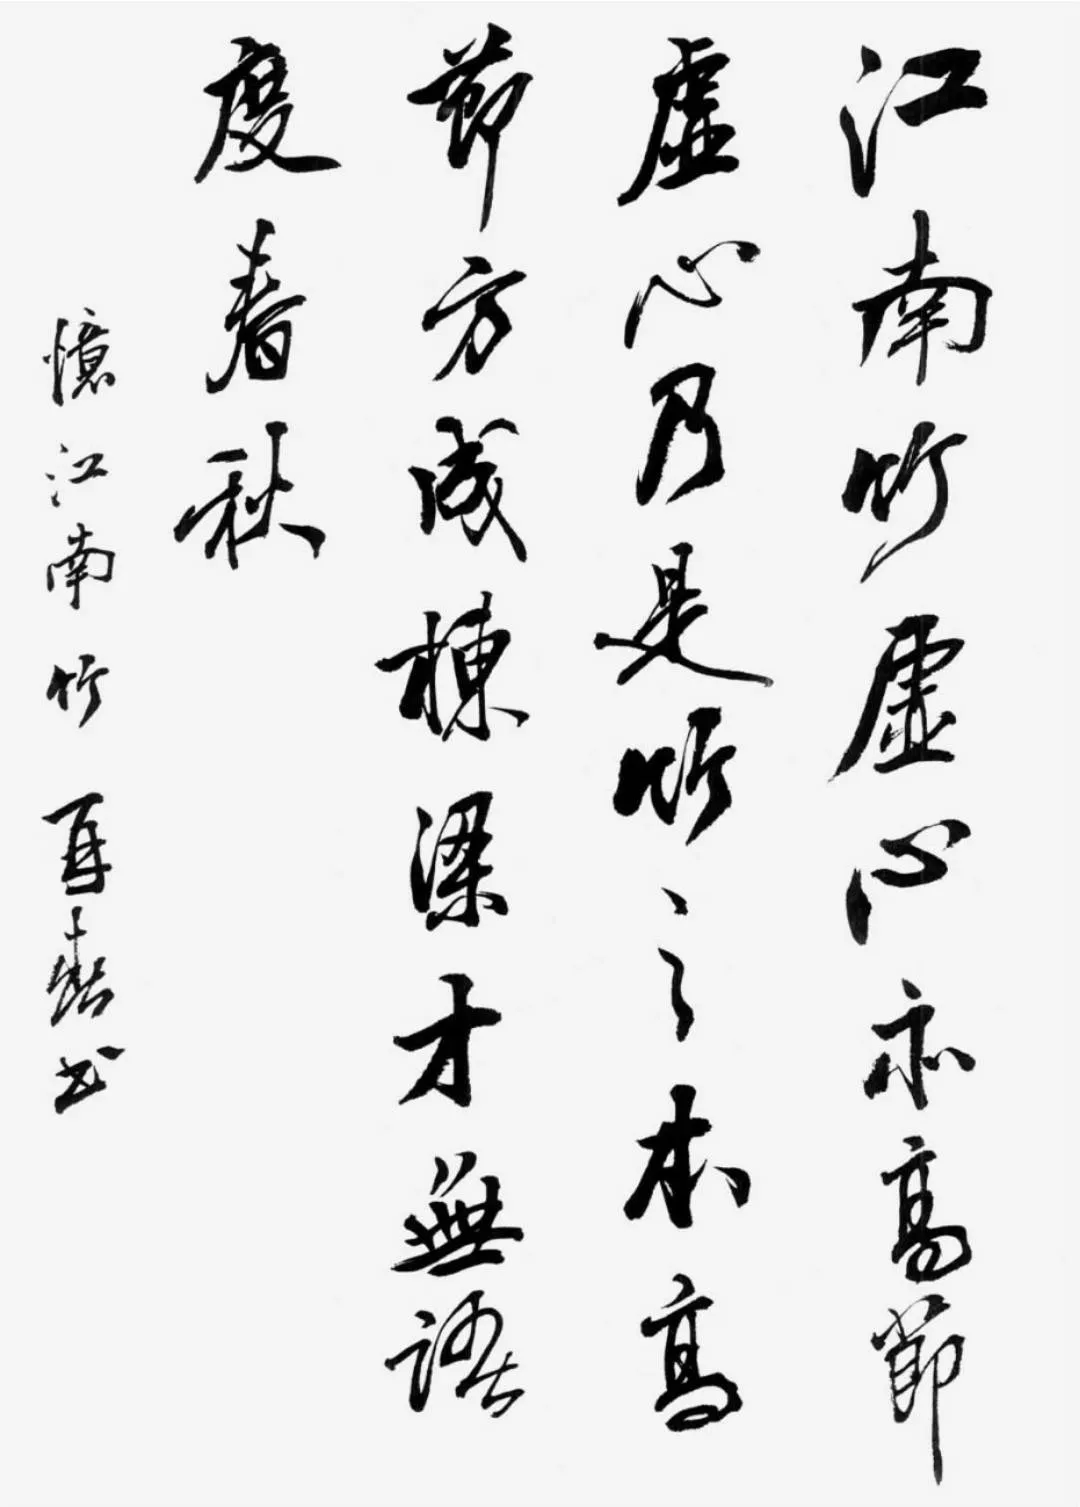 江南竹虛心亦高節
虛心乃是竹之本高
節方成棟梁才無語
度春秋
憶江南竹 書